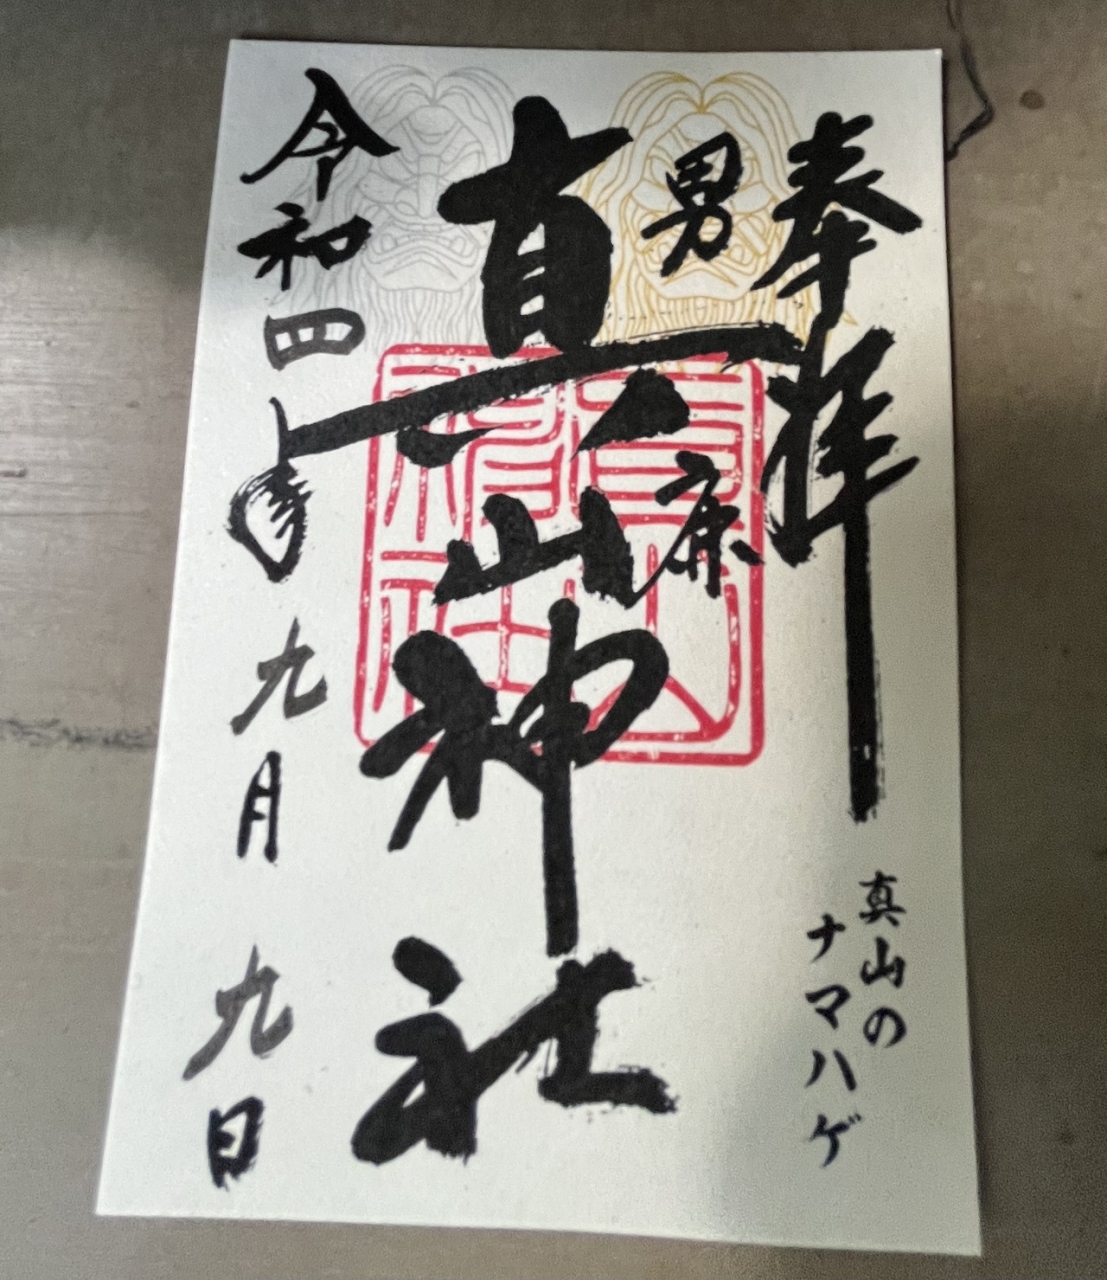 奉拝
真山の
ナマハゲ
男鹿
真山神社
令和四年九月九日